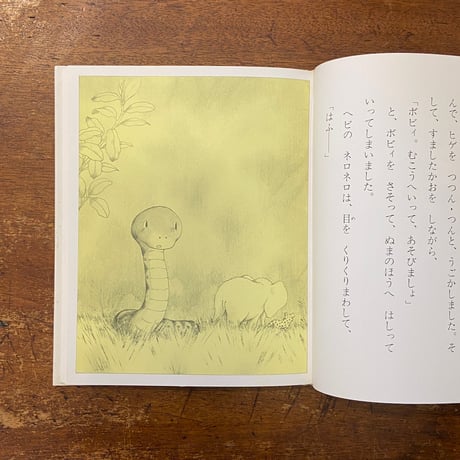 んで、ヒゲを つつん・つんと、うごかしました。そ
して、すましたかおを しながら、
「ボビィ。むこうへいって、あそびましょ」
と、ボビィを さそって、ぬまのほうへ はしって
いってしまいました。
ヘビの ネロネロは、目を くりくりまわして、
「はふ——」